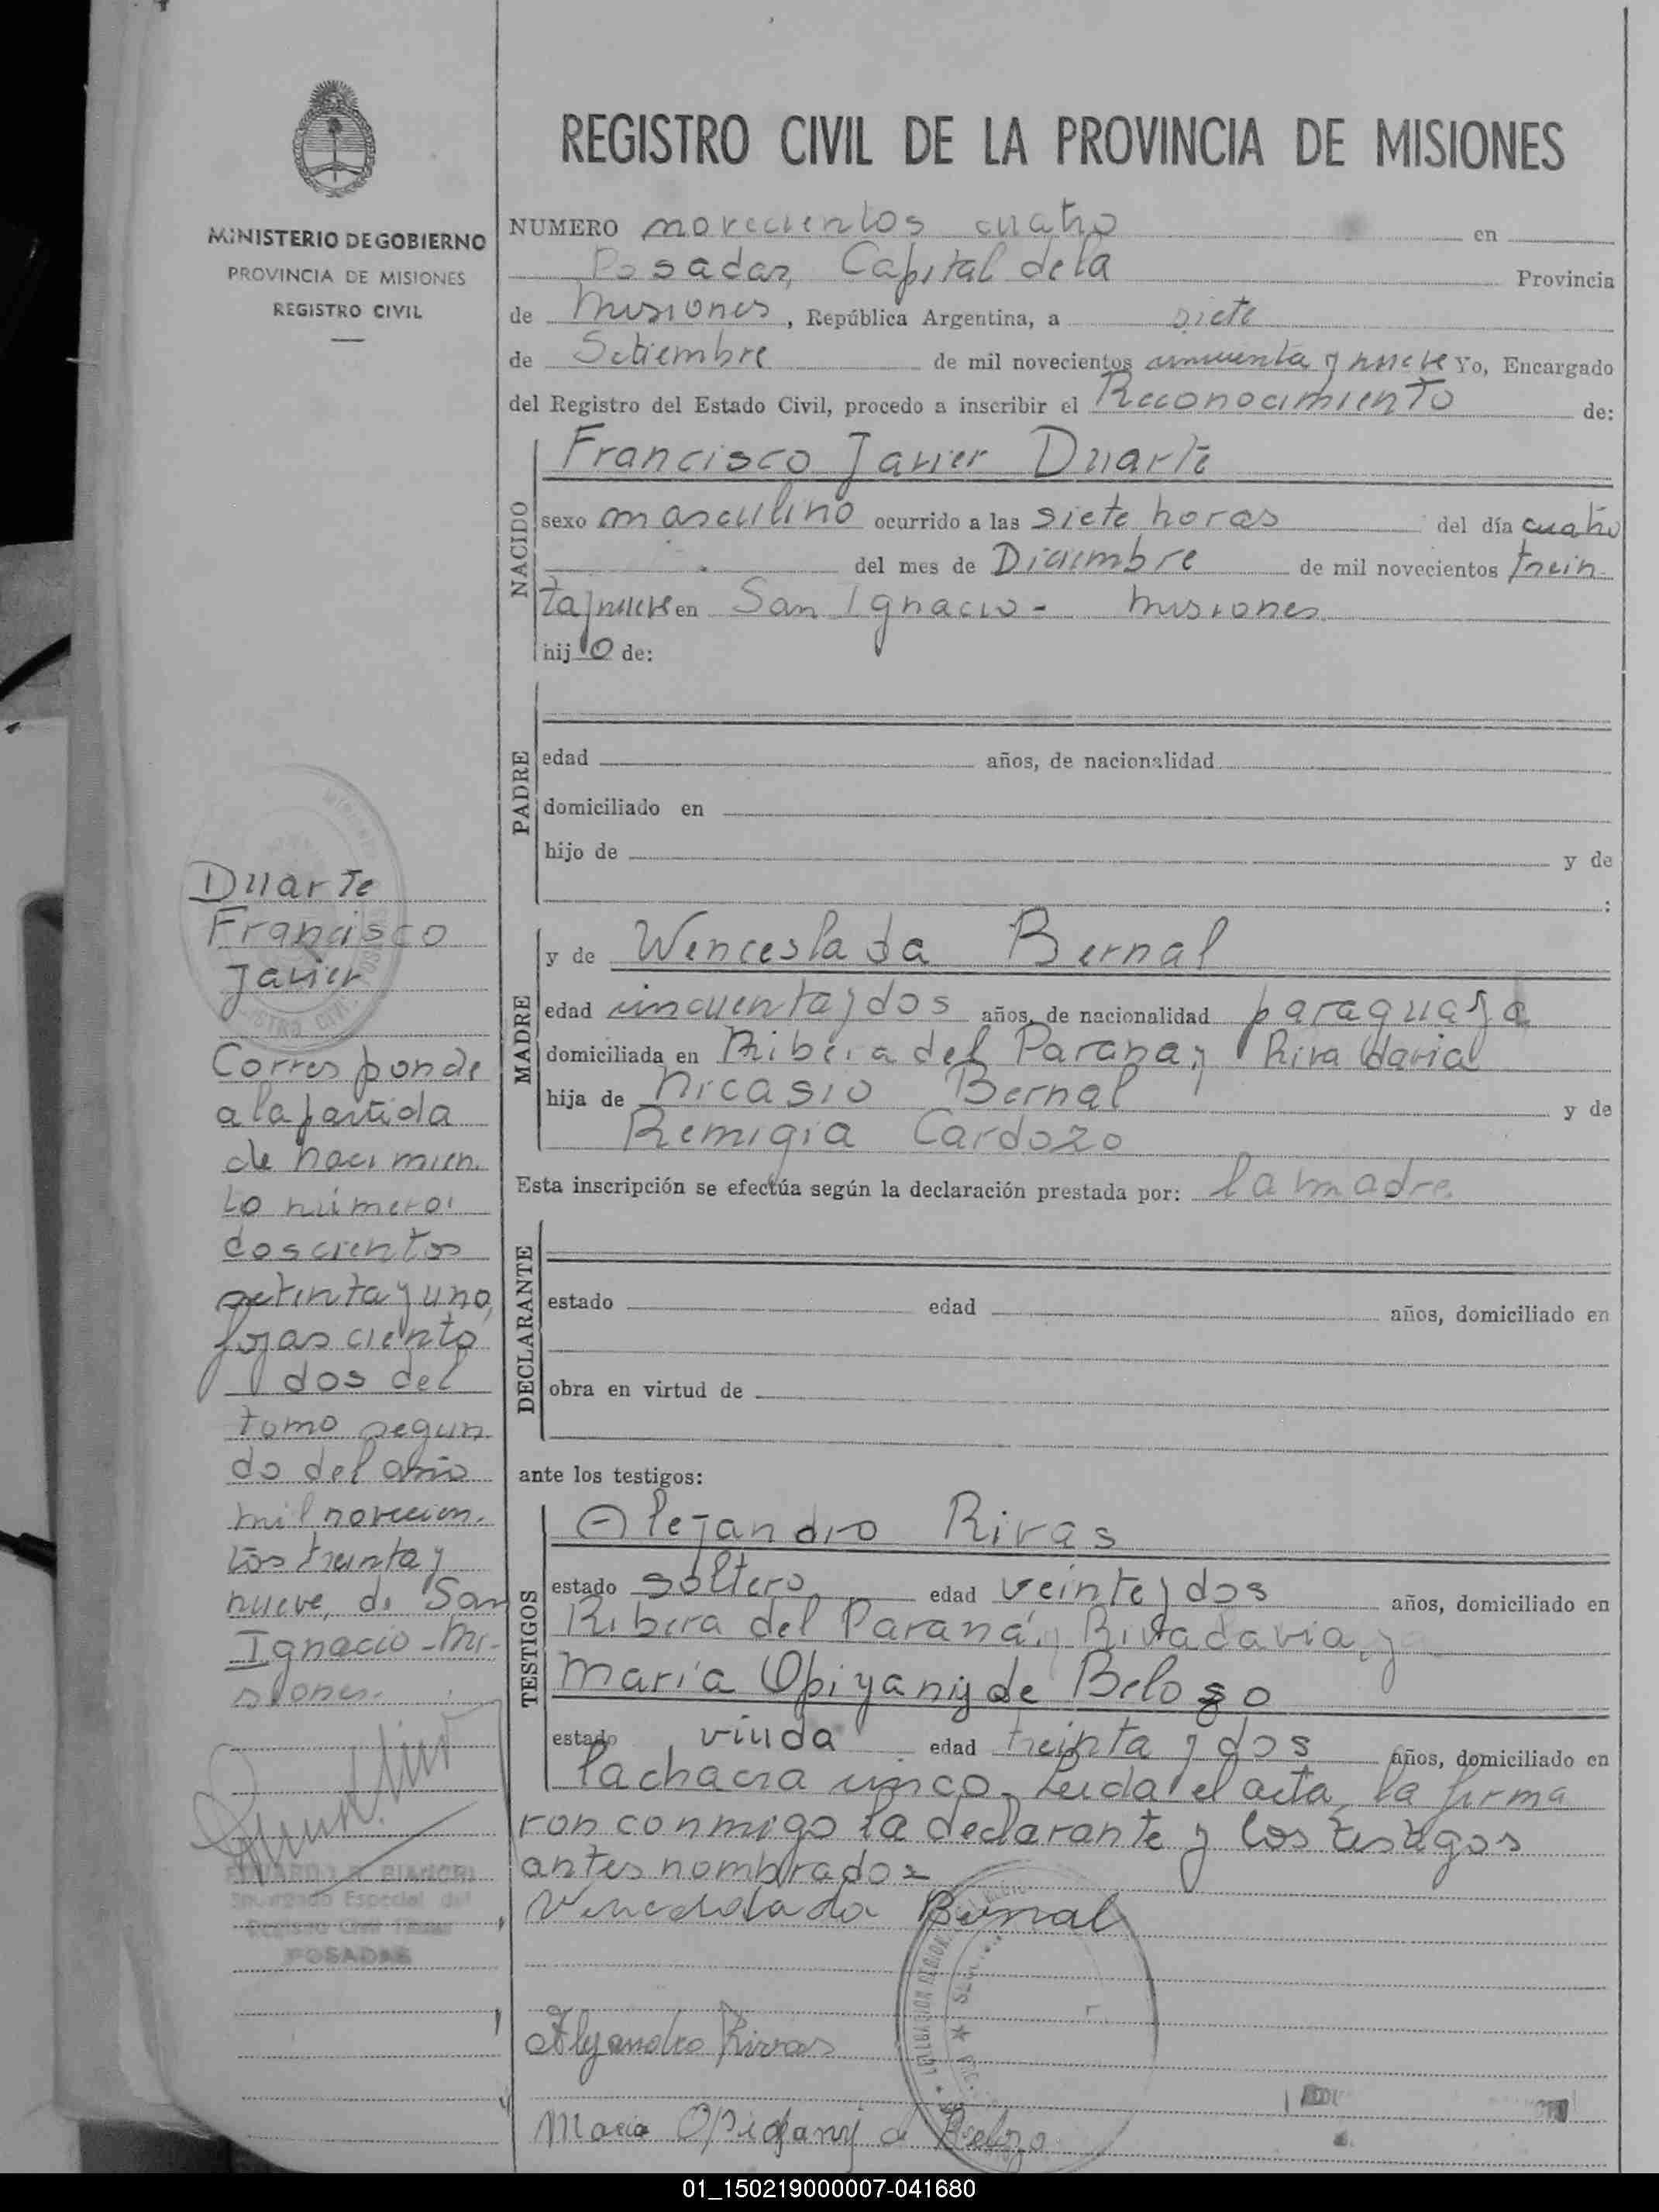 MINISTERIO DE GOBIERNO
PROVINCIA DE MISIONES
REGISTRO CIVIL
REGISTRO CIVIL DE LA PROVINCIA DE MISIONES
NUMERO novecientos cuatro en
Posadas, Capital de la Provincia
de Misiones, República Argentina, a siete
de Setiembre de mil novecientos cincuenta y nueve Yo, Encargado
del Registro del Estado Civil, procedo a inscribir el Reconocimiento de:
NACIDO
Francisco Javier Duarte
sexo masculino ocurrido a las siete horas del día cuatro
del mes de Diciembre de mil novecientos trein
ta y nueve en San Ignacio - Misiones
hijo de:
PADRE
edad años, de nacionalidad
domiciliado en
hijo de y de
:
MADRE
y de Wenceslada Bernal
edad cincuenta y dos años, de nacionalidad paraguaya
domiciliada en Ribera del Parana y Rivadavia
hija de Nicasio Bernal y de
Remigia Cardozo
Esta inscripción se efectúa según la declaración prestada por: la madre
DECLARANTE
estado edad años, domiciliado en
obra en virtud de
ante los testigos:
TESTIGOS
Alejandro Rivas
estado soltero edad veinte y dos años, domiciliado en
Ribera del Paraná y Rivadavia y
Maria Opiyanij de Belozo
estado viuda edad treinta y dos años, domiciliado en
la chacra cinco. Leida el acta, la firma
ron conmigo la declarante y los testigos
antes nombrados
Bernal
Alejandro Rivas
Maria de Belozo
Duarte
Francisco
Javier
Corresponde
a la partida
de nacimien
to número:
doscientos
setenta y uno,
fojas ciento
dos del
tomo segun
do del año
mil novecien
tos treinta y
nueve, de San
Ignacio - Mi-
siones.
BIANCHI
Encargado Especial del
Registro Civil
POSADAS
01_150219000007-041680